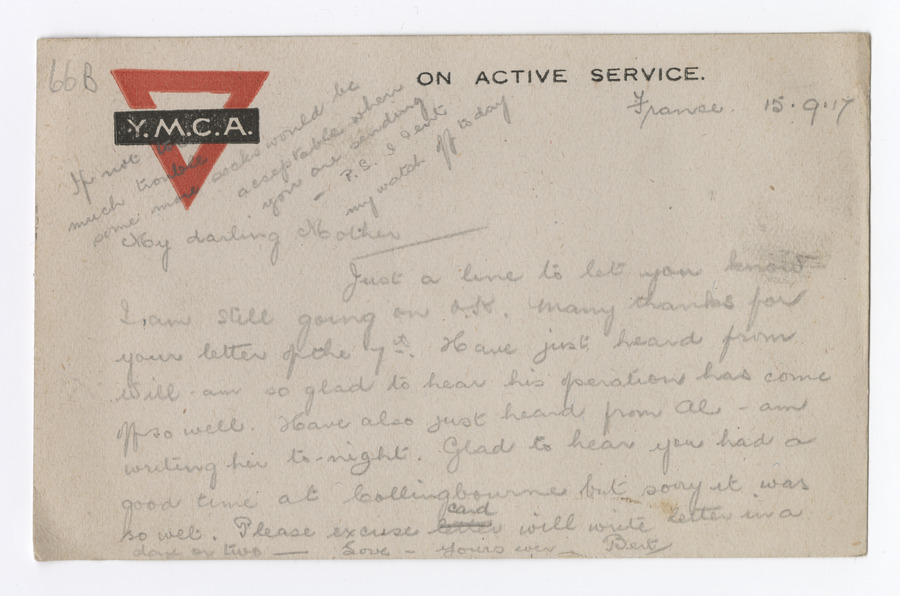 66B
ON ACTIVE SERVICE.
Y.M.C.A.
France. 15.9.17
If not too
much trouble
some more socks would be
acceptable when
you are sending
- P.S. I sent
my watch off today
My darling Mother
Just a line to let you know
I am still going on O.K. Many thanks for
your letter of the 7th. Have just heard from
Will - am so glad to hear his operation has come
off so well. Have also just heard from Al - am
writing her to-night. Glad to hear you had a
good time at Collingbourne but sorry it was
so wet. Please excuse card will write letter in a
day or two — Love - Yours ever - Bert